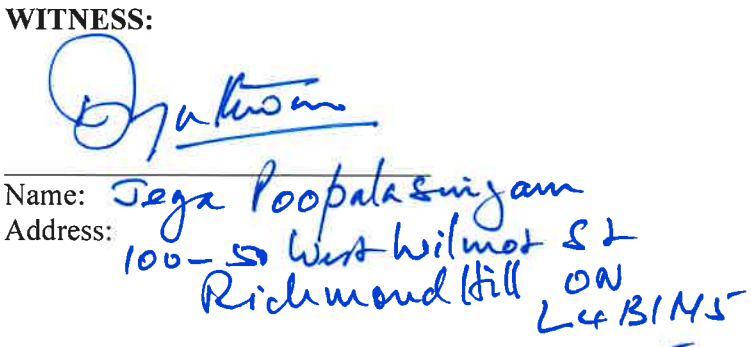 WITNESS:
Name: Jega Poopalasingam
Address:
100-50 West Wilmot St
Richmond Hill ON
L4B1M5